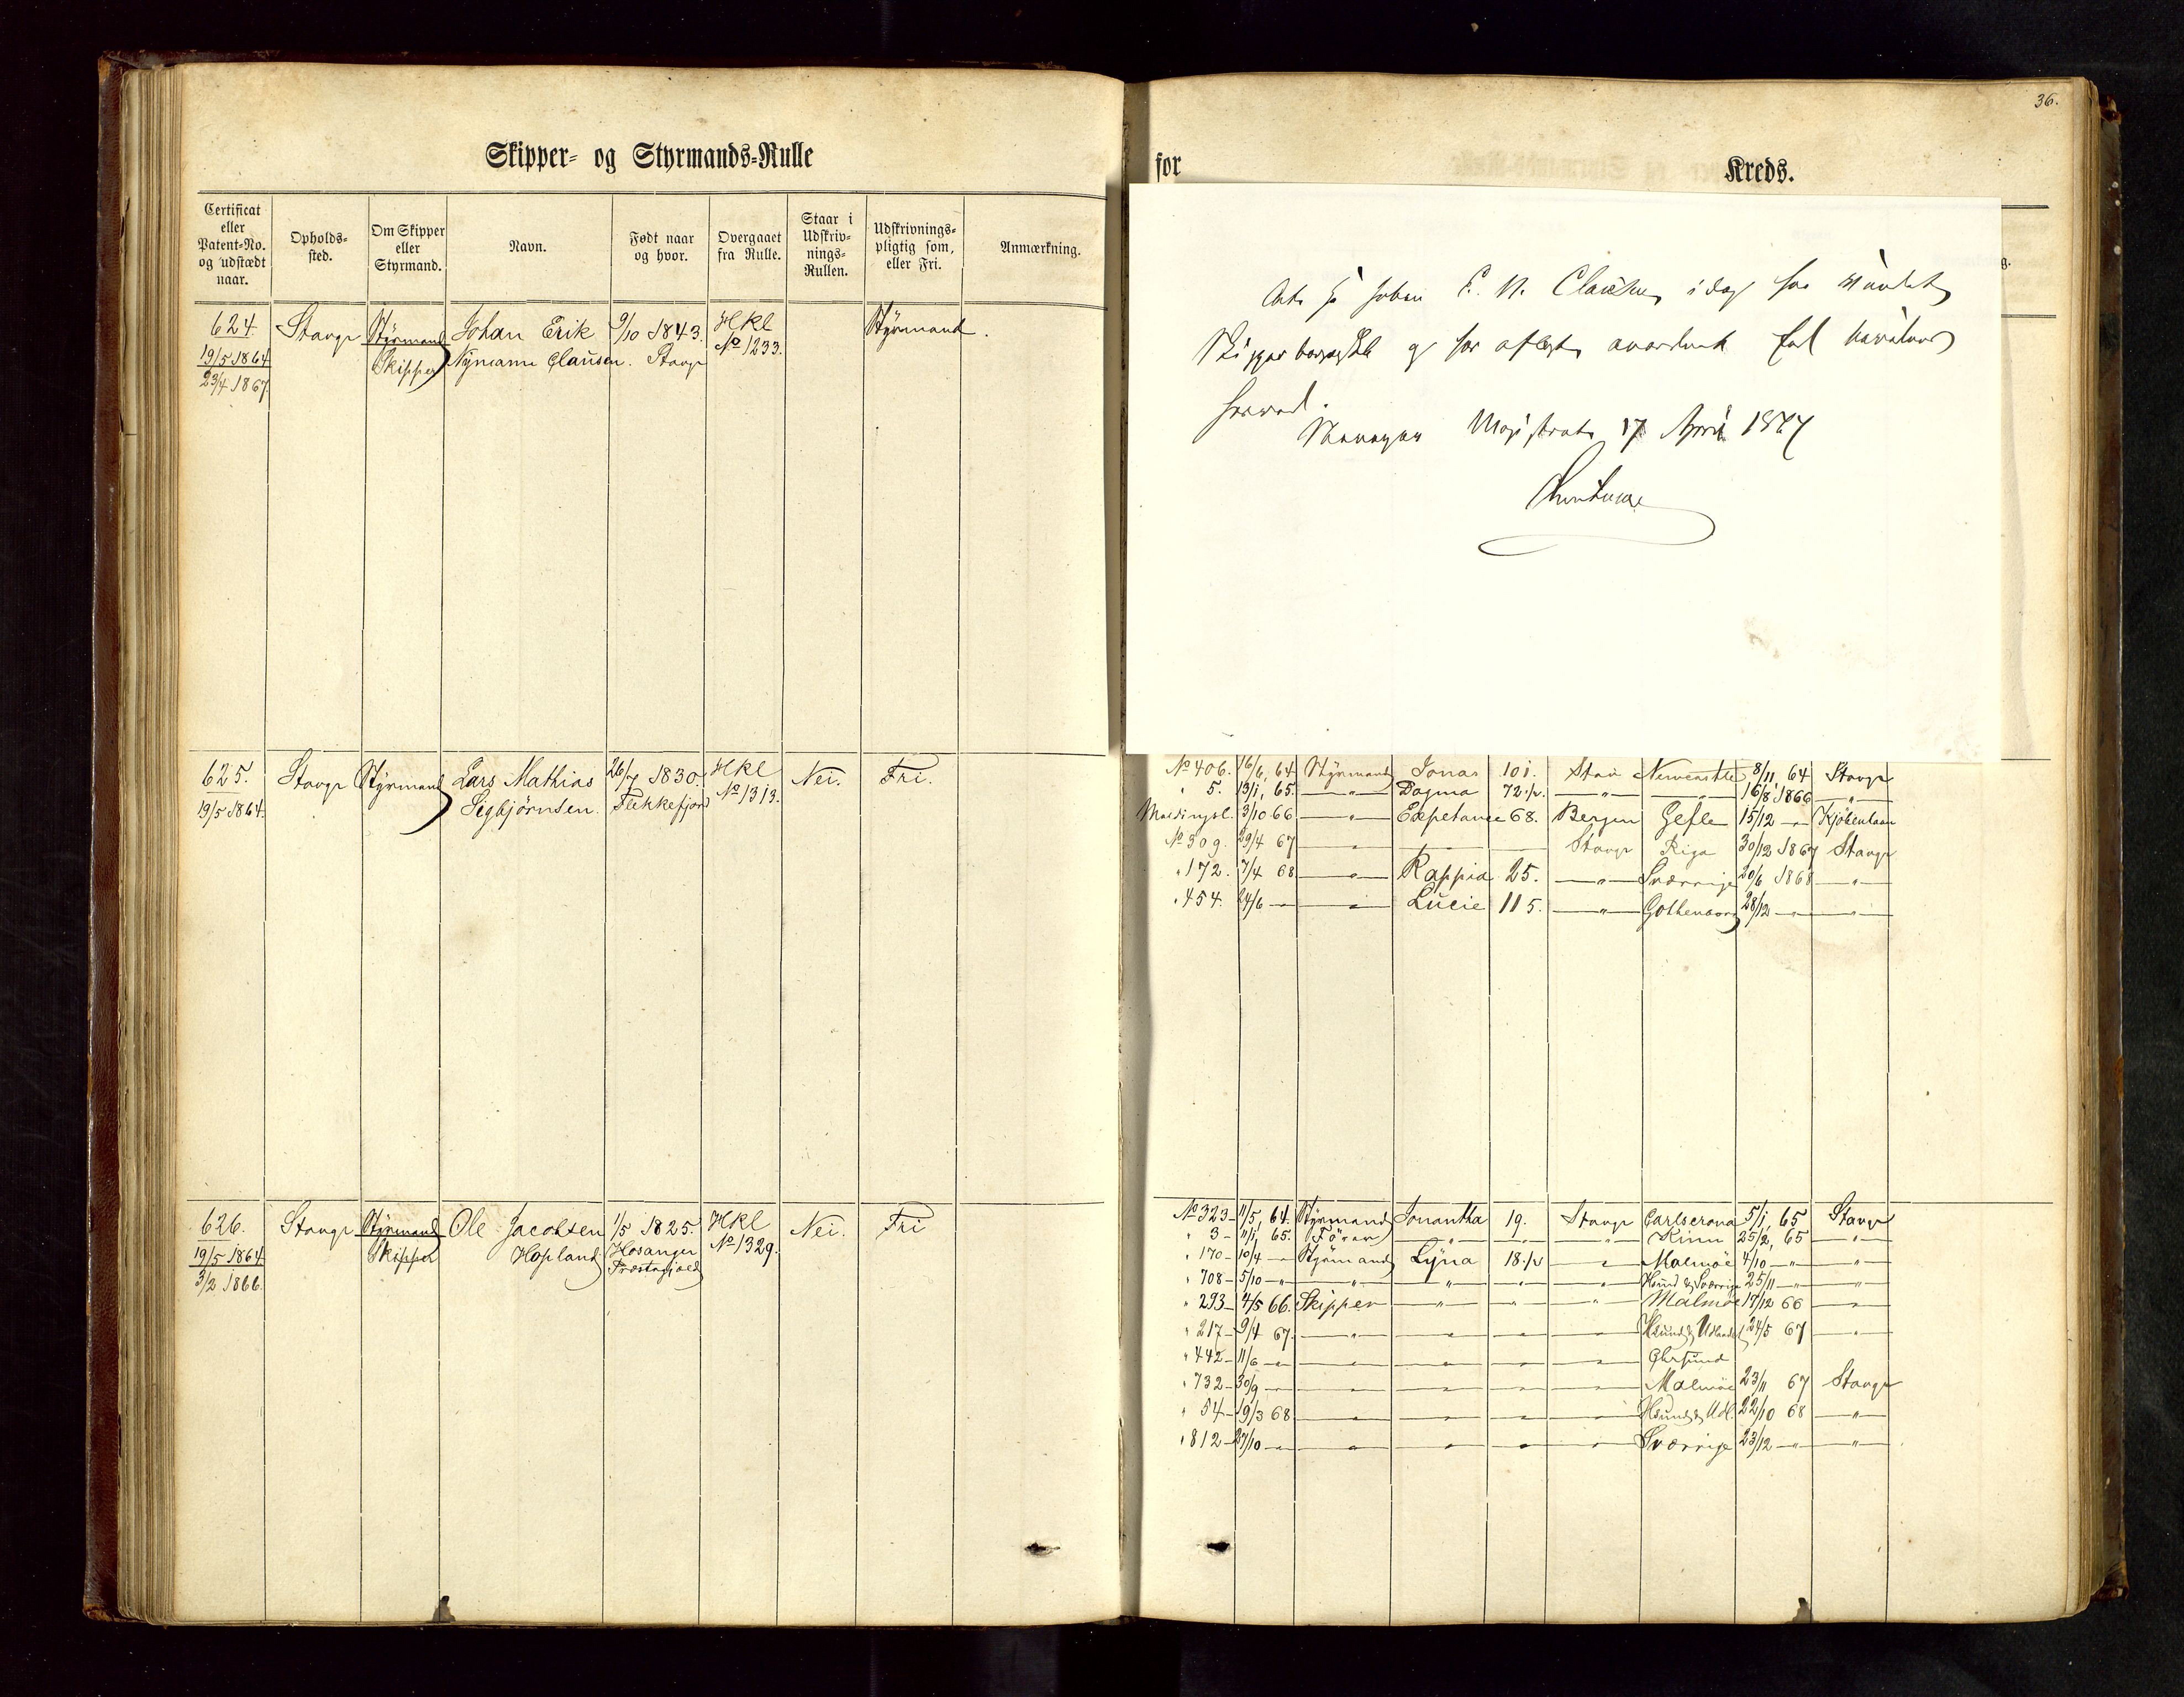 36.
Skipper- og Styrmands-Rulle
for Kreds.
Certificat eller Patent-No. og udstædt naar.
Opholds-sted.
Om Skipper eller Styrmand.
Navn.
Født naar og hvor.
Overgaaet fra Rulle.
Staar i Udskriv-nings-Rullen.
Udskrivnings-pligtig som, eller Fri.
Anmærkning.
624 Stavgr Styrmand Johan Erik 9/10 1843. Hkl Styrmand.
19/5 1864 Skipper Nymann Clausen. Stavgr No 1233.
23/4 1867.
At Johan E. N. Clausen idag har
Skipperborgerskab og har aflagt Ed
Stavanger Magistrat 17 April 1867
625. Stavgr Styrmand Lars Mathias 26/7 1830. Hkl Nei. Fri.
19/5 1864. Sigbjørnsen. Flekkefjord No 1313.
No 406. 16/6, 64 Styrmand Jonas 101. Stav Newcastle 8/11 64 Stavgr
" 5. 13/1, 65. — " — Dagma — " — 16/8 1866 — " —
3/10 66 — " — Expetance 68. Bergen Gefle 15/12 — " — Kjöbenhavn
No 309. 29/4 67 — " — Stavgr Riga 30/12 1867 Stavgr
" 172. 7/4 68 — " — Rappia 25. — " — Sverrige 20/6 1868 — " —
" 454. 24/6 — " — — " — Lucie 115. — " — Gothenborg 28/12 — " — — " —
626. Stavgr Styrmand Ole Jacobsen 1/5 1825. Hkl Nei. Fri
19/5 1864 Skipper Hopland Hosanger No 1329.
3/2 1866. Præstegjæld
No 323 — 11/5, 64. Styrmand Jonantha 19. Stavgr Carlscrona 5/1, 65 Stavgr
" 3 — 11/1, 65. Förer " " " Kinn 25/2, 65 "
" 170 — 10/4 — " Styrmand Lyna " Malmöe 4/10 — " — "
" 708 — 5/10 — " " " " " Hsund & Sverrige 25/11 — " — "
" 293 — 4/5 66. Skipper " " " Malmöe 17/12 66 "
" 217 — 9/4 67. " " " " Hsund & Udlandet 24/5 67 "
" 442 — 11/6 — " " " " "
" 732 — 30/9 — " " " " " Malmöe 23/11 67 Stavgr
" 54 — 19/3 68 " " " " Hsund & Udl. 22/10 68 "
" 812 — 27/10 — " " " " " Sverrige 23/12 — " — "